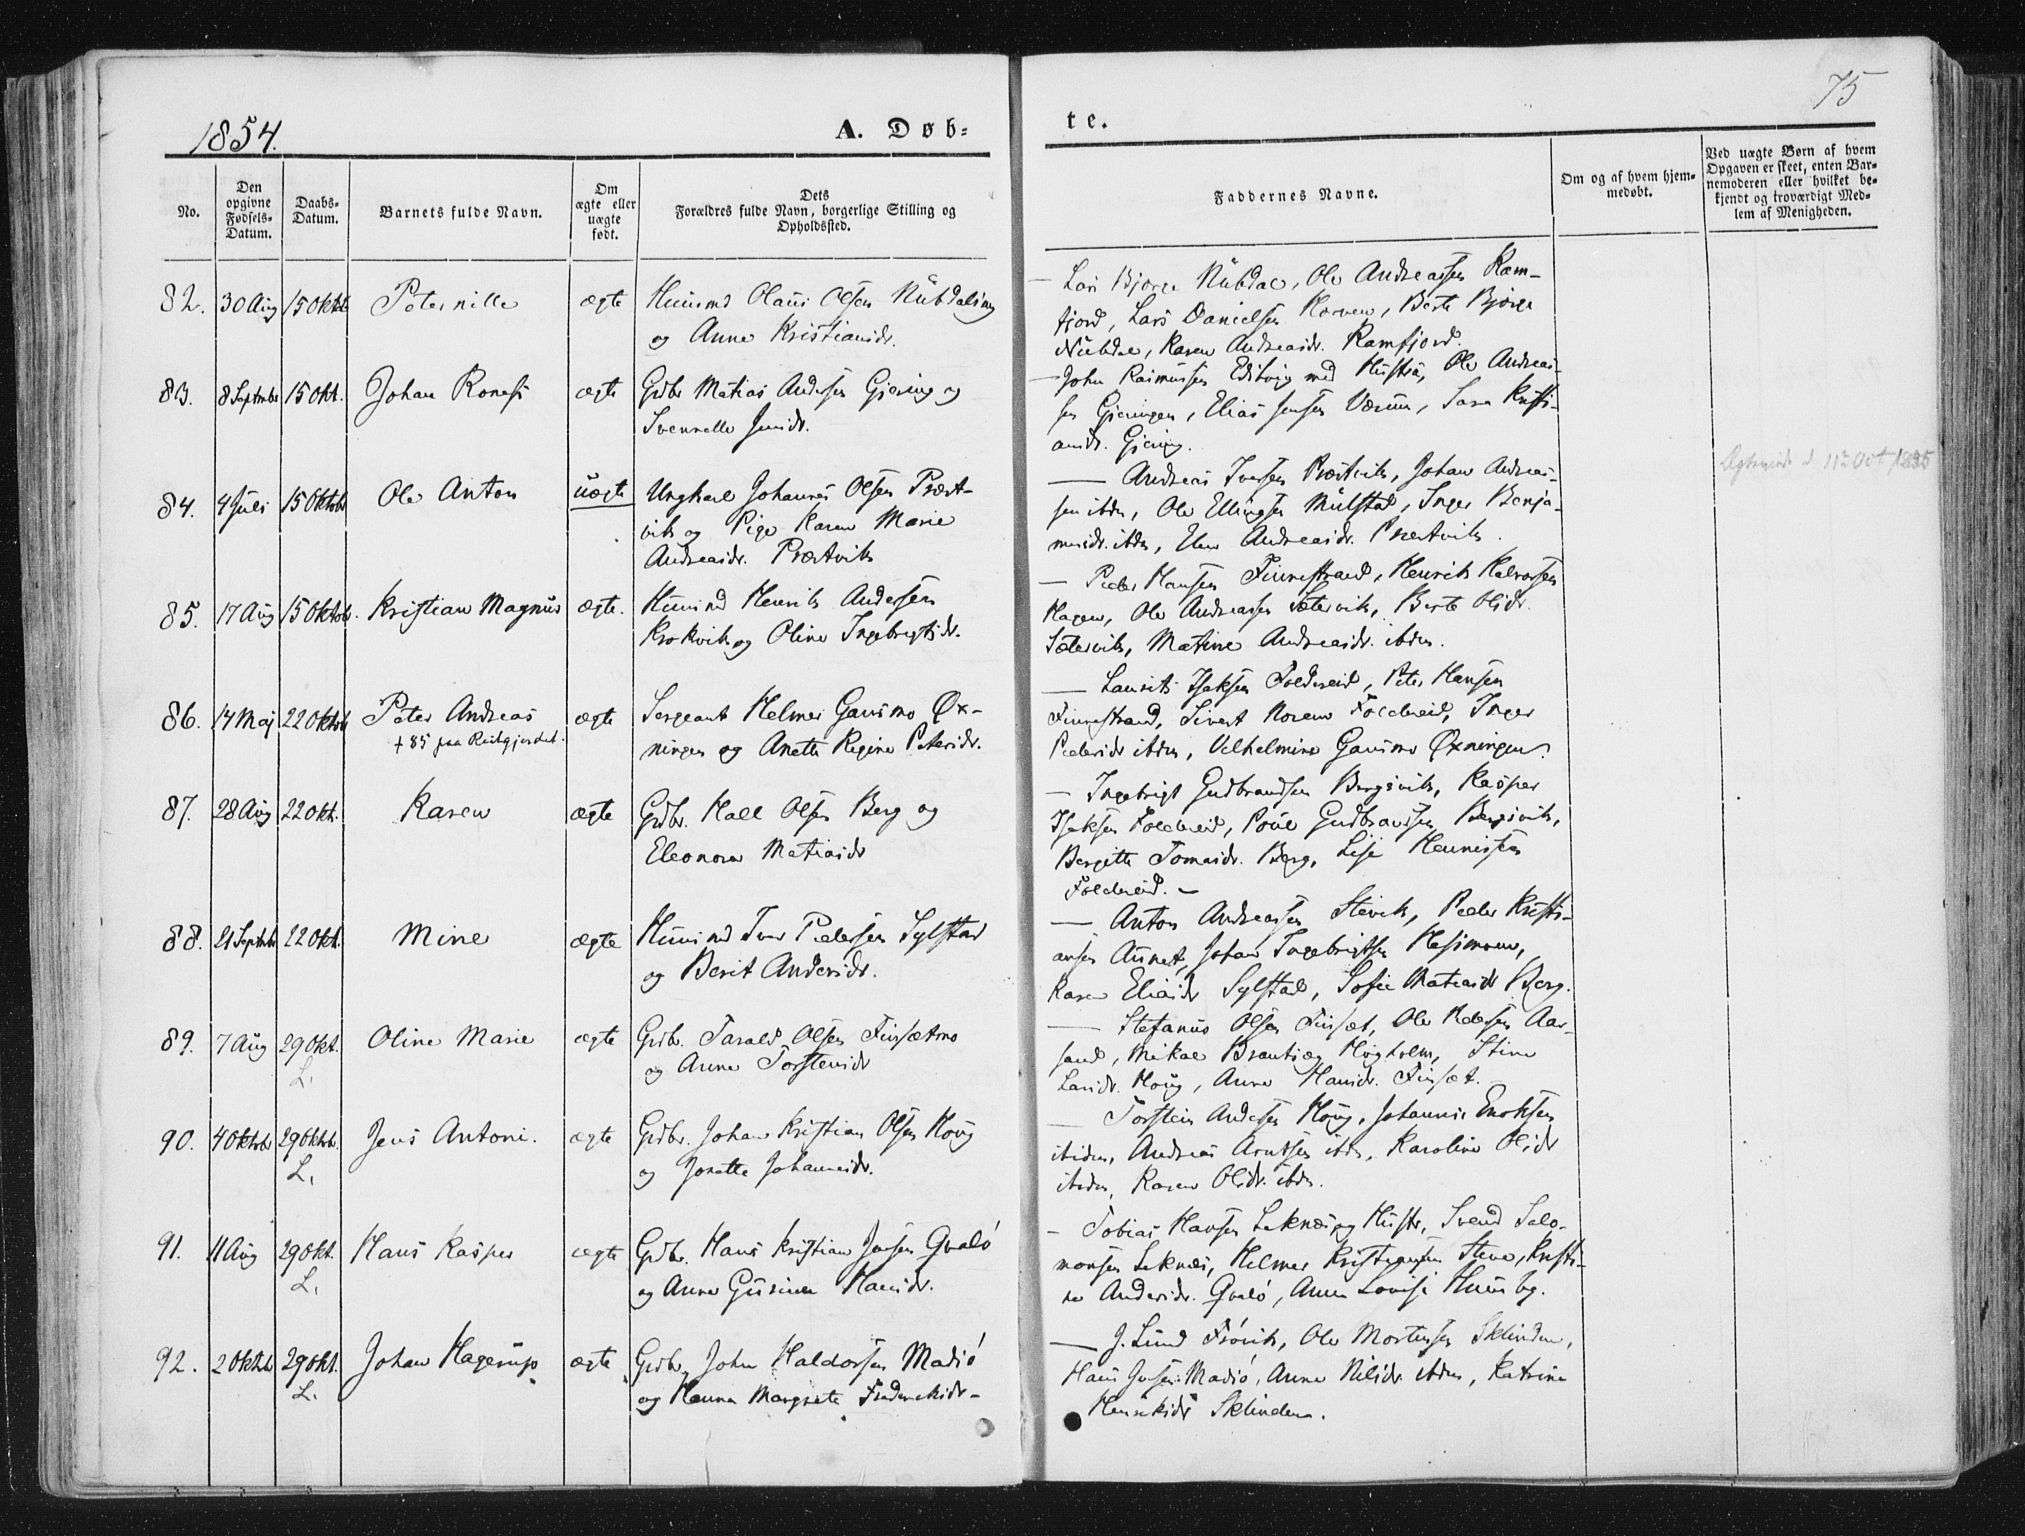 75
1854.
A. Døb-
te.
No.
Den opgivne Fødsels-Datum.
Daabs-Datum.
Barnets fulde Navn.
Om ægte eller uægte født.
Dets Forældres fulde Navn, borgerlige Stilling og Opholdssted.
Faddernes Navne.
Om og af hvem hjem-medøbt.
Ved uægte Børn af hvem Opgaven er skeet, enten Bar-nemoderen eller hvilket be-kjendt og troværdigt Med-lem af Menigheden.
82. 30 Aug 15 Oktb Peternille ægte Huusmd Olaus Olsen
og Anne Kristiansdr.
Lars Bjørge Nubdal, Ole Andreassen Ram-
fjord, Lars Danielsen Horven, Berte Bjørge
Nubdal, Karen Andreasdr. Ramfjord.
83. 8 Septmbr 15 Okt. Johan Ronæs ægte Grdbr Matias Andersen Gjæring og
Jensdr.
John Rasmussen med Hustru, Ole Andreas-
sen Gjæringen, Elias Jensen Værum, Sara Kristi-
ansdr. Gjæring.
84. 4 Juli 15 Oktobr Ole Anton uægte Ungkarl Johannes Olsen Præst-
vik og Pige Karen Marie
Andreasdr. Præstvik
Andreas Iversen Præstvik, Johan Andreas-
sen ibdm, Ole Ellingsen Mulstad, Inger Benja-
minsdr. ibdm, Elen Andreasdr. Præstvik.
11te Oct 1855
85. 17 Aug 15 Oktob. Kristian Magnus ægte. Huusmd Henrik Andersen
Krokvik og Oline Ingebrigtsdr.
Peder Hansen Finnestrand, Henrik Halvorsen
Hagen, Ole Andreassen Sætervik, Berte Olsdr.
Sætervik, Matine Andreasdr. ibdm.
86. 14 Maj 22 Oktob Peter Andreas ægte Sergeant Helmer Gansmo Øx-
+ 85 paa
ningen og Anette Regine Petersdr.
Laurits Isaksen Foldereid, Peter Hansen
Finnestrand, Sivert Noren Foldereid, Inger
Pedersdr ibdm, Vilhelmine Gansmo Øxningen.
87. 28 Aug 22 Okt. Karen ægte Grdbr. Hall Olsen Berg og
Eleonora Matiasdr
Ingebrigt Gudbrandsen Bergsvik, Kasper
Isaksen Foldereid, Poul Gudbrandsen Bergsvik,
Bergitte Tomasdr. Berg, Lise
Foldereid.
88. 21 Septmbr 22 Okt. Mine ægte Huusmd Iver Pedersen Sylstad
og Berit Andersdr.
Anton Andreassen Stevik, Peder Kristi-
ansen Aunet, Johan Ingebrigtsen
Karen Eliasdr Sylstad, Sofie Matiasdr Berg.
89. 7 Aug 29 Okt. Oline Marie ægte Grdbr. Tarald Olsen Finsætmo
L. og Anne Torstensdr
Stefanus Olsen Finsæt, Ole Pedersen Aar-
sand, Mikal Høgholm, Stine
Larsdr. Houg, Anne Hansdr. Finsæt.
90. 4 Oktobr 29 Oktbr. Jens Antoni. ægte Grdbr. Johan Kristian Olsen Houg
L. og Jonette Johannesdr.
Torstein Andersen Houg, Johannes Enoksen
ibidm, Andreas Arntsen ibdm, Karoline Olsdr
ibidm, Karen Olsdr. ibdm.
91. 11 Aug 29 Okt. Hans Kasper ægte Grdbr. Hans Kristian Jensen Gvalø
L. og Anne Gurine Hansdr.
Tobias Hansen Leknæs og Hustr., Svend Salo-
monsen Leknæs, Helmer Kristiansen Stene, Kristi-
ne Andersdr. Gvalø, Anne Lovise
92. 2 Oktbr 29 Okt. Johan Hagerup ægte Grdbr. John Haldorsen Madsø
L. og Hanna Margrete Frederiksdr.
J. Lund Frøvik, Ole Mortensen Sklinden,
Hans Jensen Madsø, Anne Nilsdr. ibdm, Katrine
Henriksdr Sklinden.